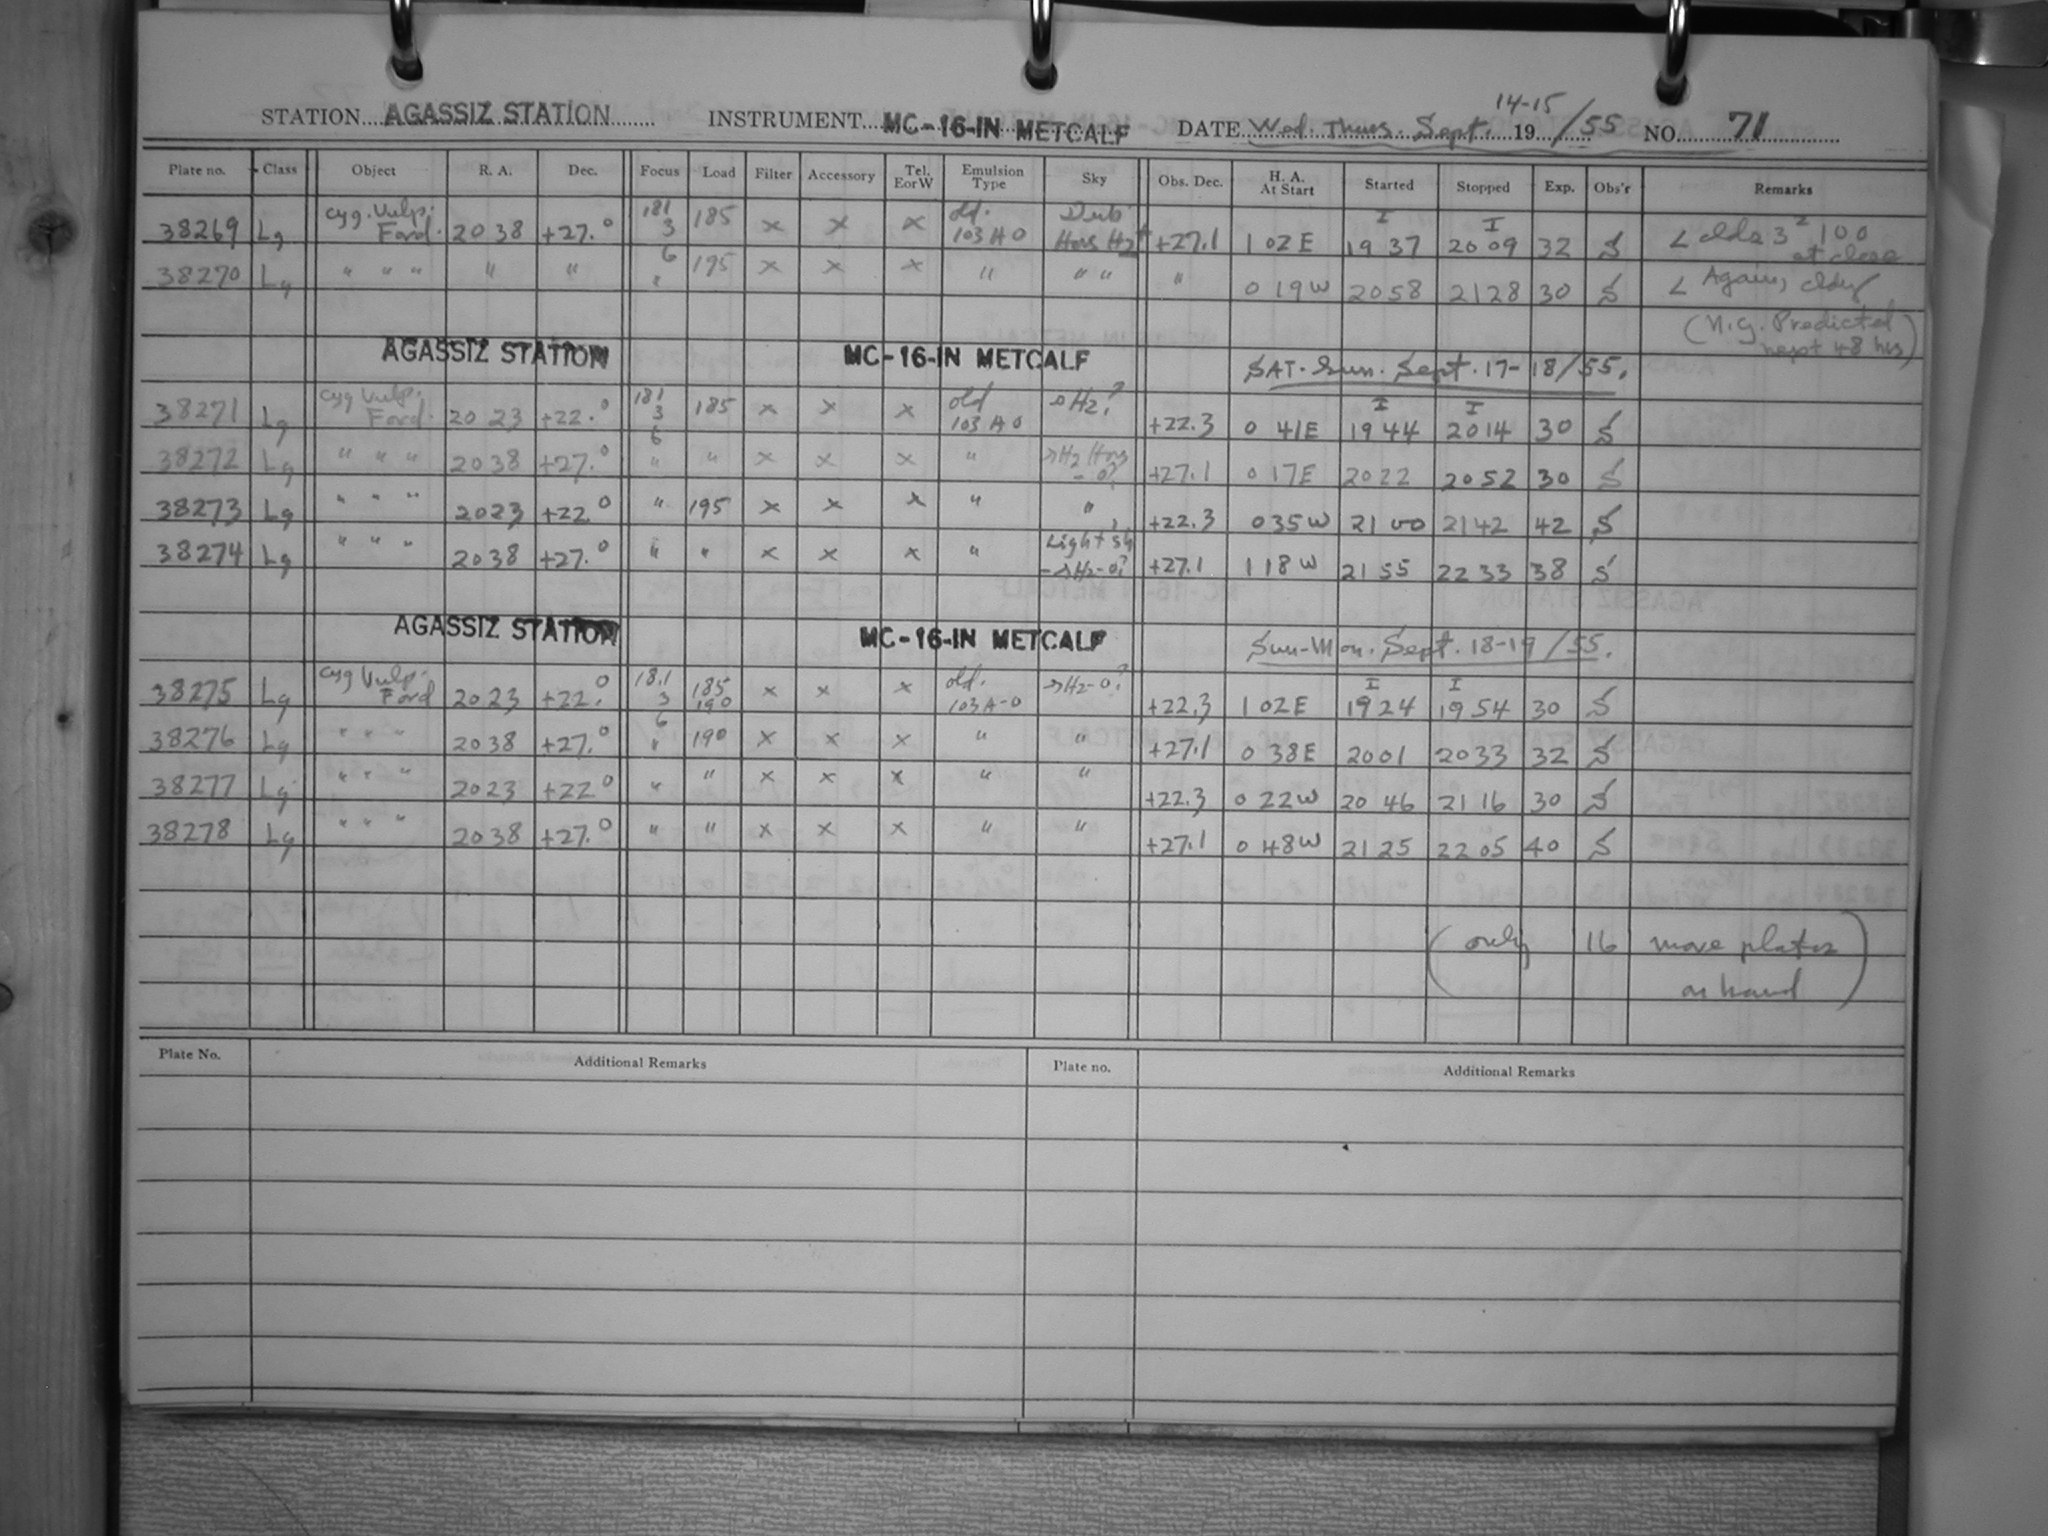 STATION AGASSIZ STATION INSTRUMENT MC-16-IN METCALF DATE Wed. Thurs. Sept. 14-15 19/55 NO. 71
Plate no. Class Object R. A. Dec. Focus Load Filter Accessory Tel. E or W Emulsion Type Sky Obs. Dec. H. A. At Start Started Stopped Exp. Obs'r Remarks
38269 Lg Cyg. Vulp. Ford. 20 38 +27.° 181 3 185 x x x old. 103 A O Hors H2 +27.1 1 02E I 19 37 I 20 09 32 S < clds 3 2 100 at close
38270 Lg " " " " " 6 " 195 x x x " " " " 0 19W 2058 2128 30 S < Again, cldy
(N.g. Predicted next 48 hrs)
AGASSIZ STATION MC-16-IN METCALF SAT-Sun. Sept. 17-18/55.
38271 Lg Cyg Vulp. Ford. 20 23 +22.° 181 3 185 x x x old 103 A O H2? +22.3 0 41E I 19 44 I 20 14 30 S
38272 Lg " " " 2038 +27.° 6 " " x x x " H2 Hors -0? +27.1 0 17E 2022 2052 30 S
38273 Lg " " " 2023 +22.° " 195 x x x " " +22.3 0 35W 21 00 2142 42 S
38274 Lg " " " 2038 +27.° " " x x x " Light - H2-0? +27.1 1 18W 21 55 22 33 38 S
AGASSIZ STATION MC-16-IN METCALF Sun-Mon. Sept. 18-19/55.
38275 Lg Cyg Vulp. Ford 20 23 +22.° 18.1 3 185 190 x x x old. 103 A-O H2-0? +22.3 1 02E I 19 24 I 19 54 30 S
38276 Lg " " " 2038 +27.° 6 " 190 x x x " " +27.1 0 38E 2001 2033 32 S
38277 Lg " " " 2023 +22° " " x x x " " +22.3 0 22W 20 46 21 16 30 S
38278 Lg " " " 2038 +27.° " " x x x " " +27.1 0 48W 2125 2205 40 S
(only 16 more plates
on hand)
Plate No. Additional Remarks Plate no. Additional Remarks